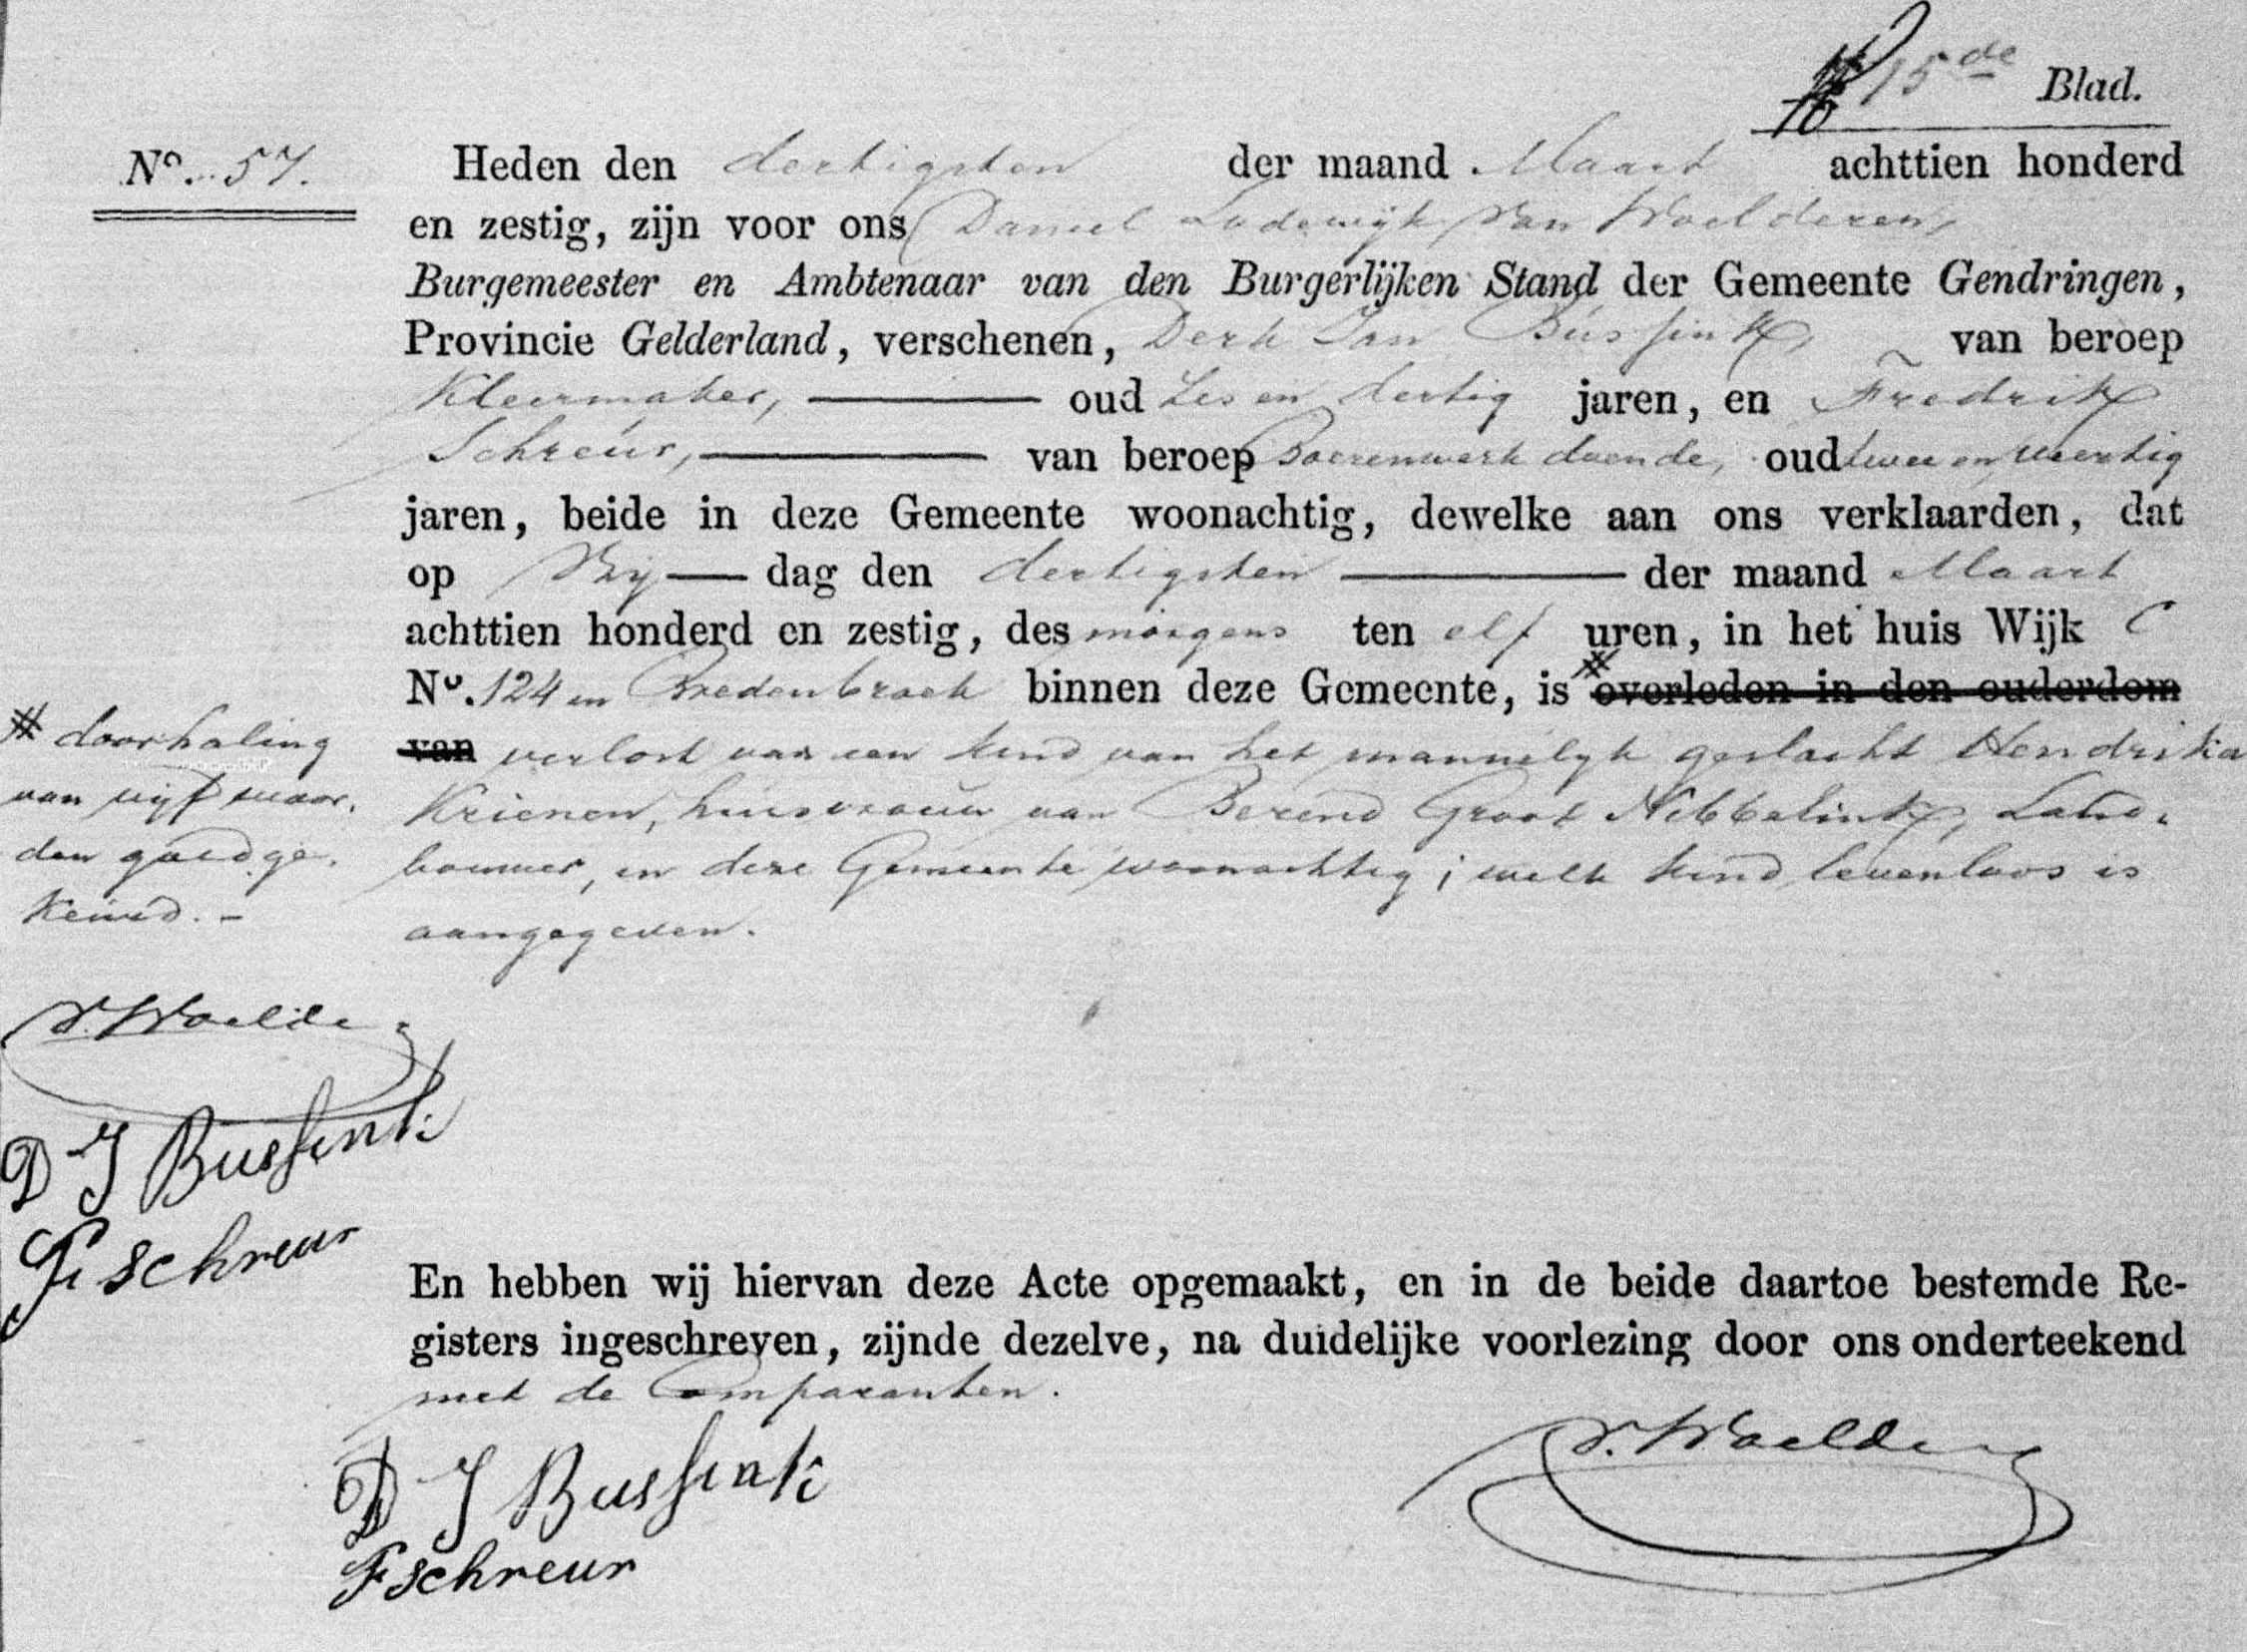 15de Blad.
No. 57.
Heden den dertigsten der maand Maart achttien honderd
en zestig, zijn voor ons Daniel Lodewijk van Woelderen,
Burgemeester en Ambtenaar van den Burgerlijken Stand der Gemeente Gendringen,
Provincie Gelderland, verschenen, Derk Jan Bussink, van beroep
Kleermaker, oud zes en dertig jaren, en Fredrik
Schreur, van beroep Boerenwerk doende, oud twee en veertig
jaren, beide in deze Gemeente woonachtig, dewelke aan ons verklaarden, dat
op Vrij dag den dertigsten der maand Maart
achttien honderd en zestig, des morgens ten elf uren, in het huis Wijk C
No. 124 in Bredenbroek binnen deze Gemeente, is # overleden in den ouderdom
van verlost van een kind van het mannelyk geslacht Hendrika
Krienen, huisvrouw van Berend Groot Nibbelink, Land-
bouwer, in deze Gemeente woonachtig; welk kind levenloos is
aangegeven.
# doorhaling
van vijf woor-
den goedge-
keurd. -
v. Woelderen
D J Bussink
F schreur
En hebben wij hiervan deze Acte opgemaakt, en in de beide daartoe bestemde Re-
gisters ingeschreven, zijnde dezelve, na duidelijke voorlezing door ons onderteekend
met de Comparanten.
D J Bussink
F schreur
v. Woelderen